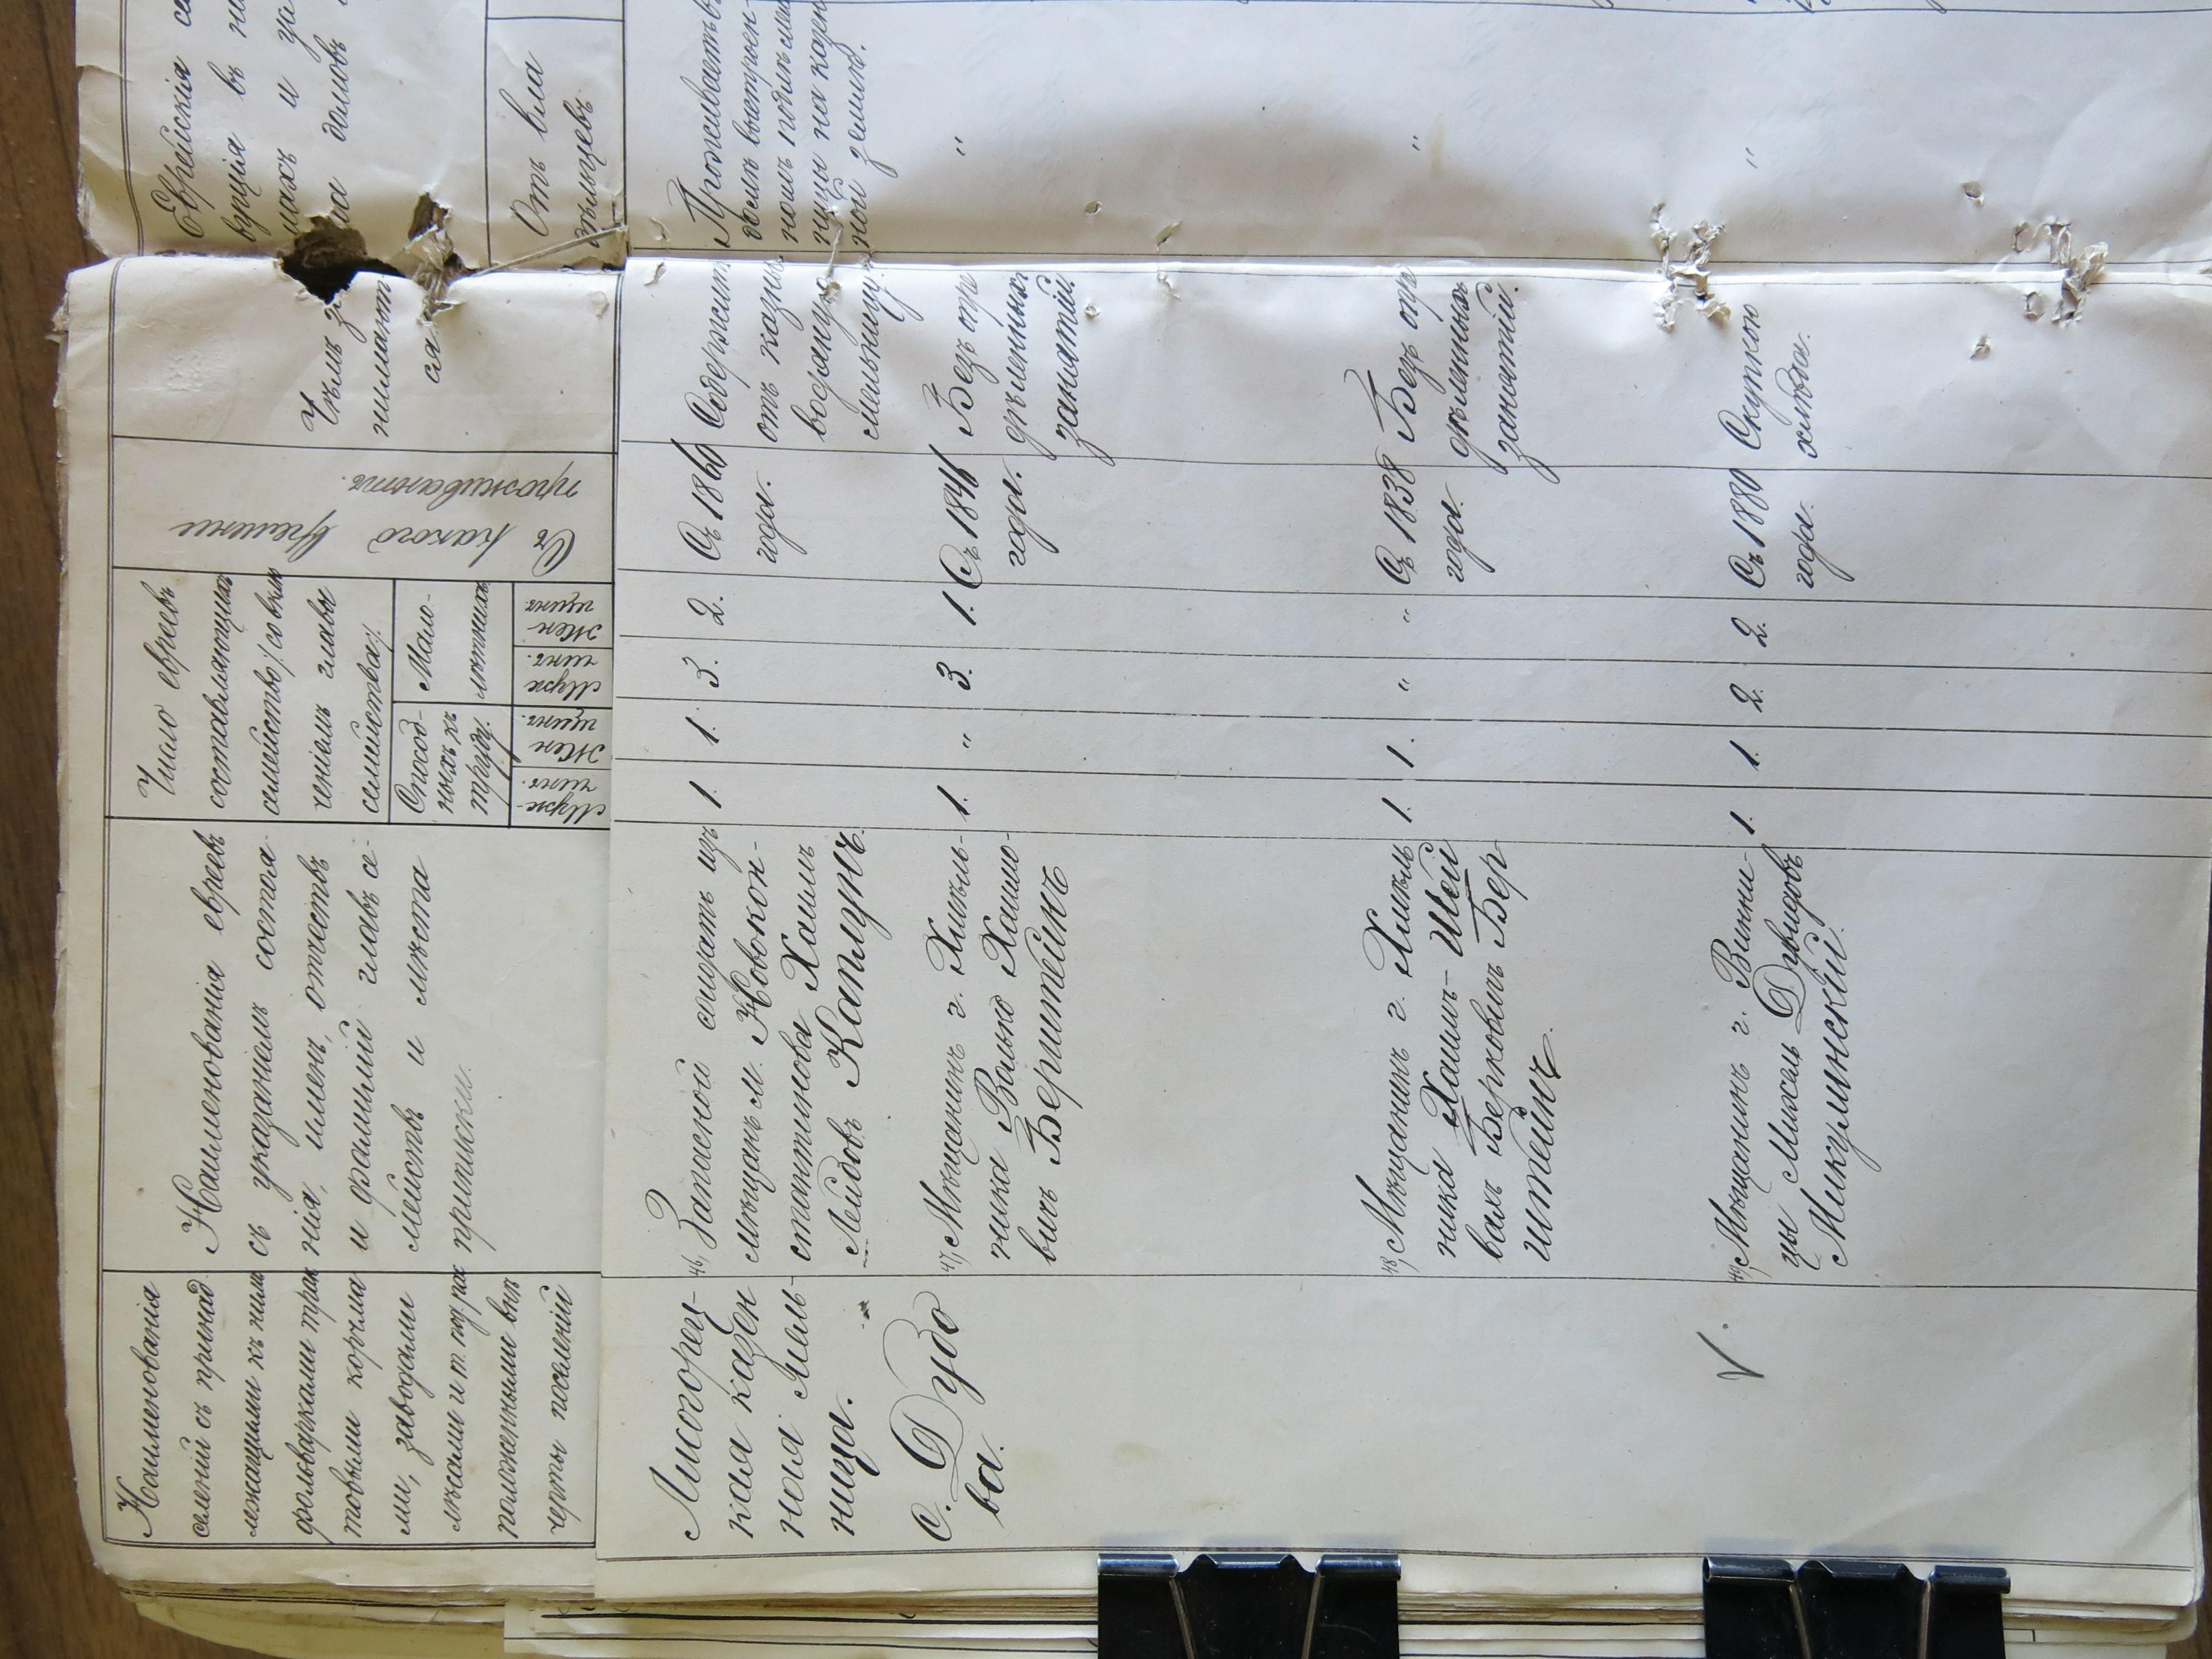 Наименованія
селеній съ принад
лежащими къ ним
фольварками трак
товыми корчма
ми, заводами
лѣсами и т. под. рас
положенными внѣ
черты поселеній
Наименованія евреевъ
съ указаніемъ состоя-
нія, именъ, отчествъ
и фамилій главъ се-
мействъ и мѣста
приписки.
Число евреевъ
составляющихъ
семейство /со вклю
ченіемъ главы
семейства/.
Способ-
ныхъ къ
труду.
Мало-
лѣтнихъ
Муж-
чинъ.
Жен
щинъ.
Муж
чинъ.
Жен-
щинъ
Съ какого
времени
проживаютъ.
Чѣмъ за
нимают
ся
Еврейскія
въ
и
домовъ
Отъ вла
дѣльцевъ
Лисогорец-
кая казен
ная мель-
ница.
46) Запасной солдатъ изъ
мѣщанъ м. Новокон-
стантинова Хаимъ
Лейдовъ Каплунъ.
1.
1.
3.
2.
Съ 1860
года.
Содержит
отъ казны
водяную
мельницу.
Проживаетъ в
домѣ выстроен-
номъ
на казен
ной землѣ.
с. Дудо
ва.
47) Мѣщанинъ г. Хмѣль-
ника Валько Хаимо-
вичъ Берштейнъ
1.
"
3.
1.
Съ 1846
года.
Безъ опре
дѣленныхъ
занятій.
"
48) Мѣщанинъ г. Хмѣль
ника Хаимъ-Шеі
вахъ Берковичъ Бер
штейнъ.
1.
1.
"
"
Съ 1838
года.
Безъ опре
дѣленныхъ
занятій.
"
V.
49) Мѣщанинъ г. Винни-
цы Михель Дувидовъ
Микулинскій.
1.
1.
2.
2.
Съ 1880
года.
Скупкою
хлѣба.
"